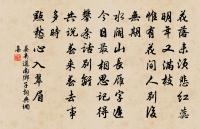 花落未須悲紅蕊
明年又滿枝
惟有花間人別後
無期
水闊山長雁字遲
今日最相思記得
攀條話別離
共說春來春去事
多時
一點愁心入翠眉
晏幾道南鄉子